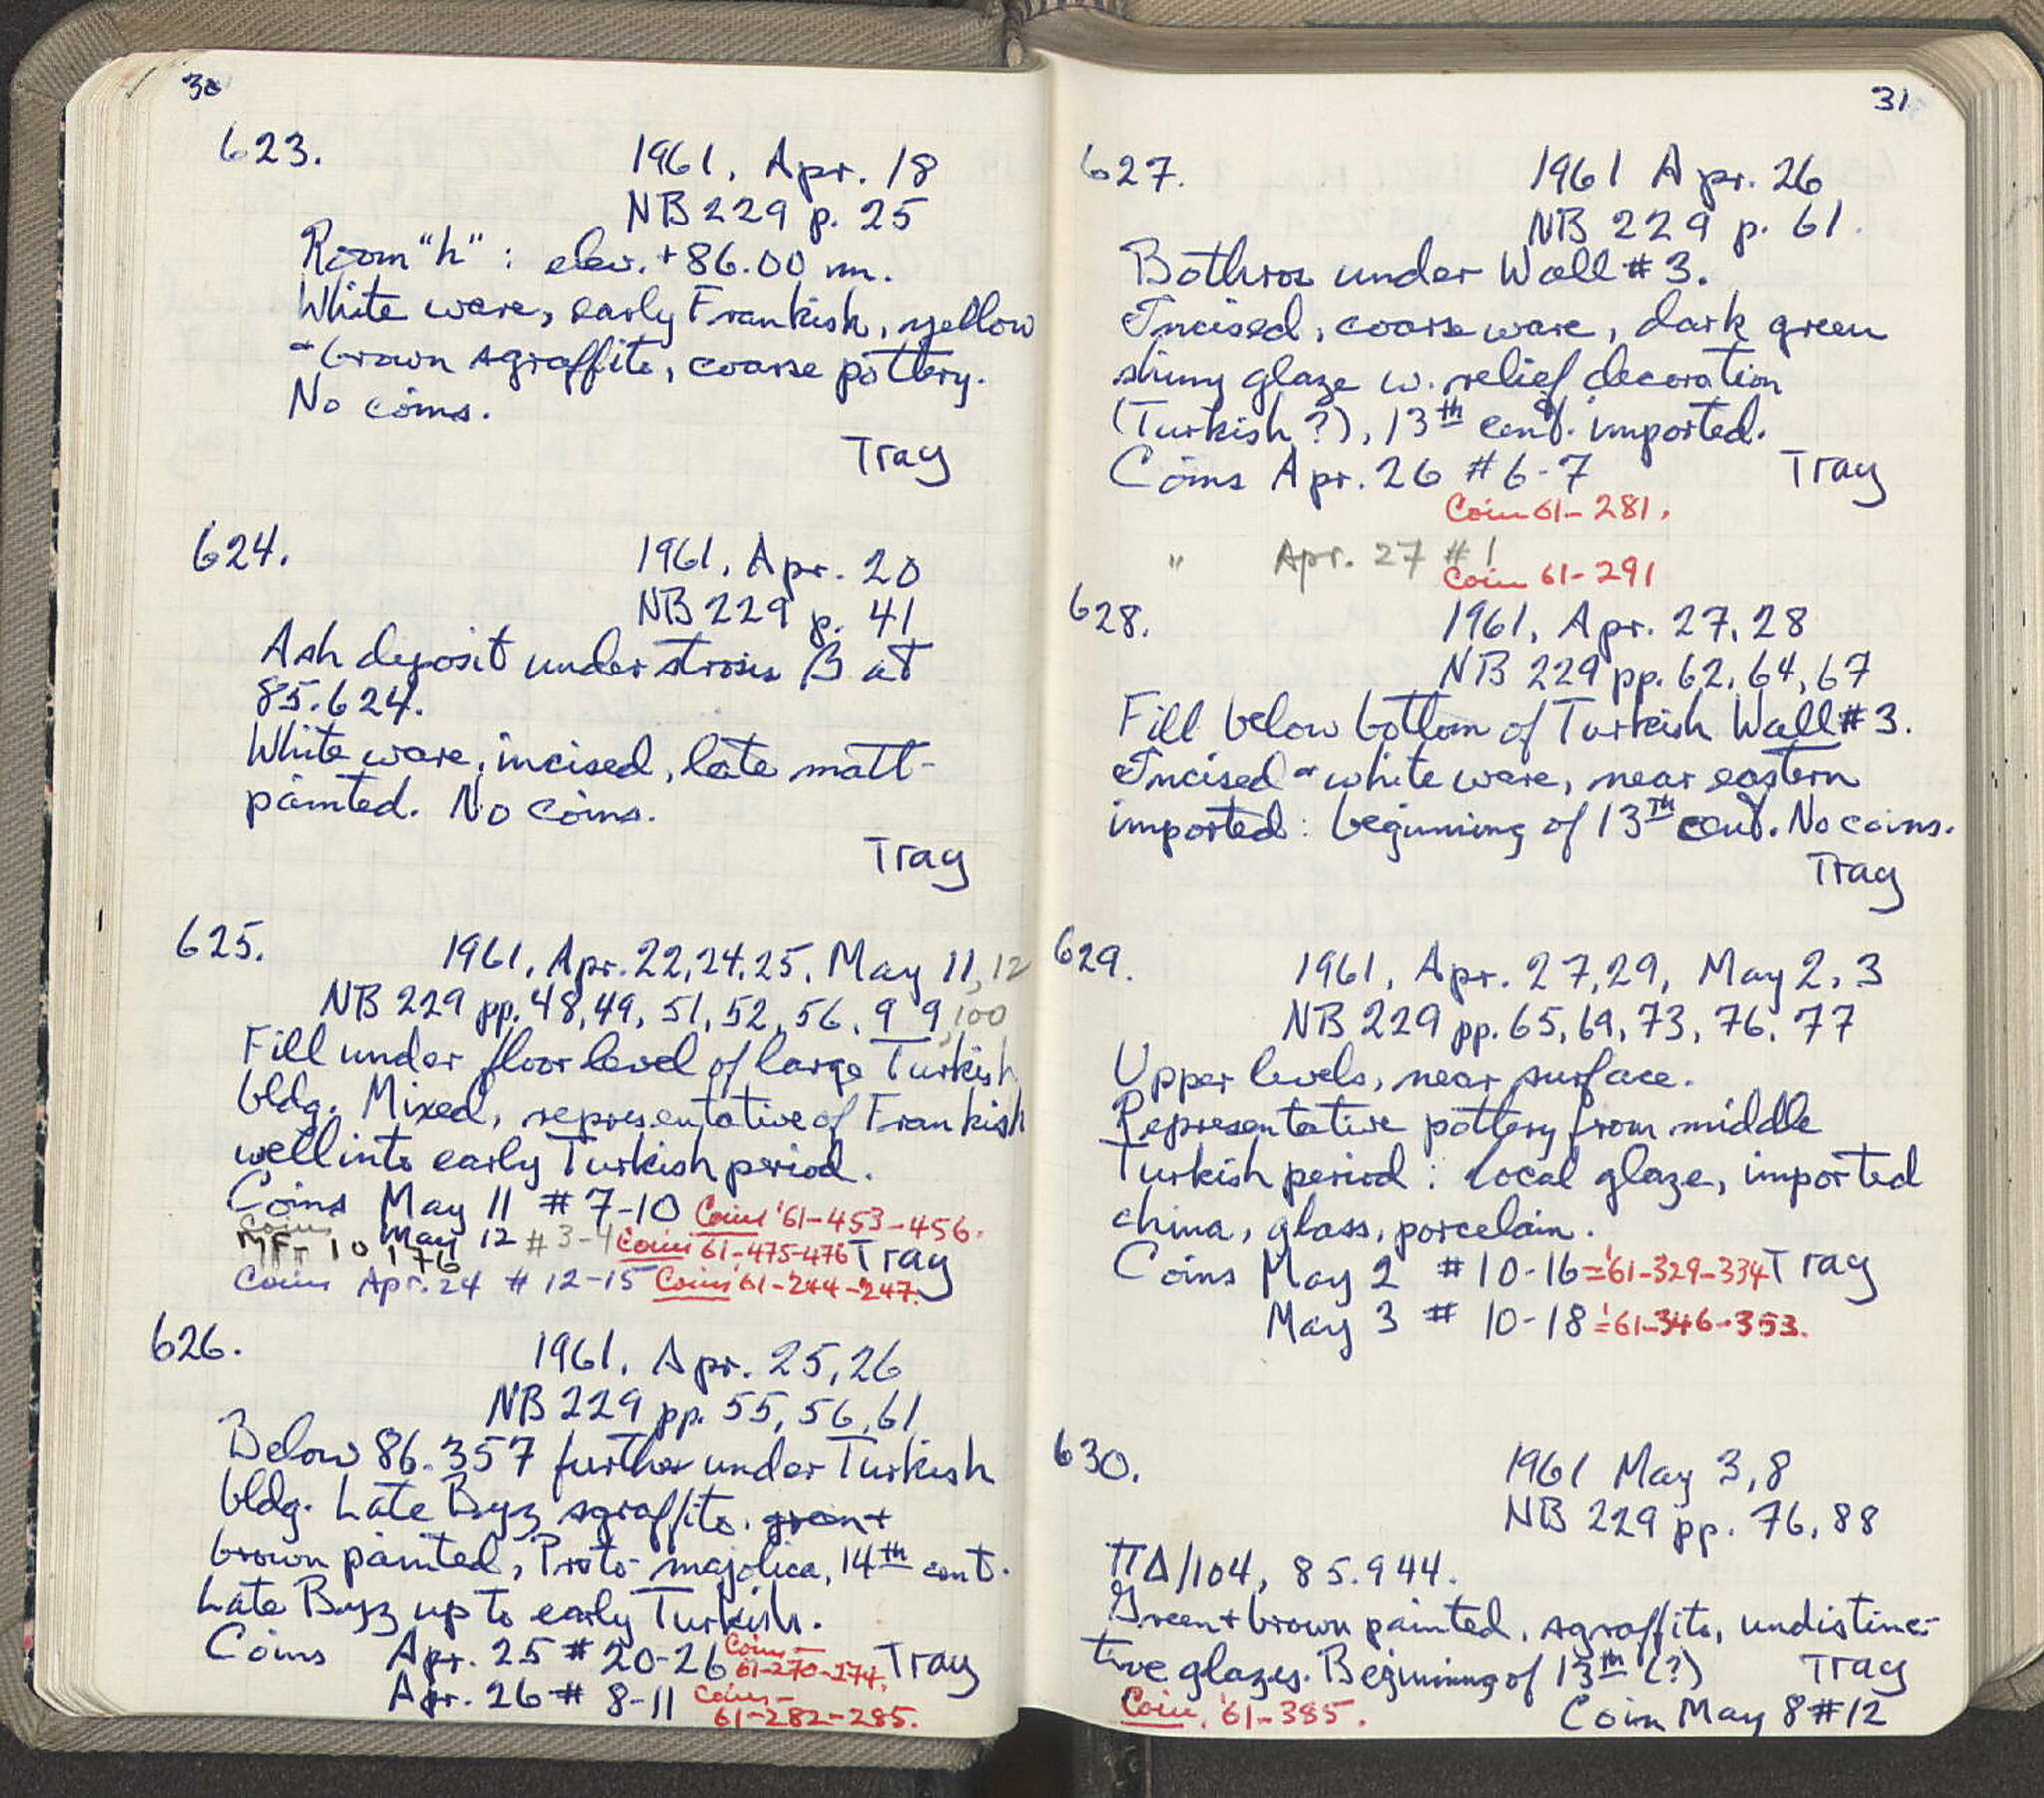 30
623.
1961, Apr. 18
NB 229 p. 25
Room "h" : elev. +86.00 m.
White ware, early Frankish, yellow
+ brown sgraffito, coarse pottery.
No coins.
Tray
624.
1961, Apr. 20
NB 229 p. 41
Ash deposit under strosis B at
85.624.
White ware, incised, late matt-
painted. No coins.
Tray
625.
1961, Apr. 22, 24, 25, May 11, 12
NB 229 pp. 48, 49, 51, 52, 56, 99, 100
Fill under floor level of large Turkish
bldg. Mixed, representative of Frankish
well into early Turkish period.
Coins May 11 # 7-10 Coins '61-453-456.
Coins May 12 # 3-4 Coins 61-475-476 Tray
MF- 10176
Coins Apr. 24 # 12-15 Coins '61-244-247.
626.
1961, Apr. 25, 26
NB 229 pp. 55, 56, 61
Below 86.357 further under Turkish
bldg. Late Byz sgraffito, green +
brown painted, Proto-majolica, 14th cent.
Late Byz up to early Turkish.
Coins Apr. 25 # 20-26 Coins- 61-270-274. Tray
Apr. 26 # 8-11 Coins- 61-282-285.
31
627.
1961 Apr. 26
NB 229 p. 61.
Bothros under Wall # 3.
Incised, coarse ware, dark green
shiny glaze w. relief decoration
(Turkish ?), 13th cent. imported.
Coins Apr. 26 # 6-7 Tray
Coin 61-281.
" Apr. 27 # 1
Coin 61-291
628.
1961, Apr. 27, 28
NB 229 pp. 62, 64, 67
Fill below bottom of Turkish Wall # 3.
Incised + white ware, near eastern
imported : beginning of 13th cent. No coins.
Tray
629.
1961, Apr. 27, 29, May 2, 3
NB 229 pp. 65, 69, 73, 76, 77
Upper levels, near surface.
Representative pottery from middle
Turkish period : local glaze, imported
china, glass, porcelain.
Coins May 2 # 10-16 = '61-329-334 Tray
May 3 # 10-18 = '61-346-353.
630.
1961 May 3, 8
NB 229 pp. 76, 88
ΠΔ/104, 85.944.
Green + brown painted, sgraffito, undistinc-
tive glazes. Beginning of 13th (?) Tray
Coin, '61-385. Coin May 8 # 12